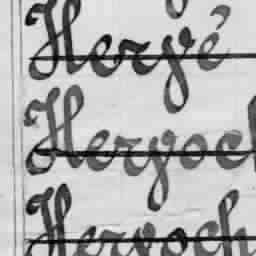 Hervé
Hervoch
Hervoch